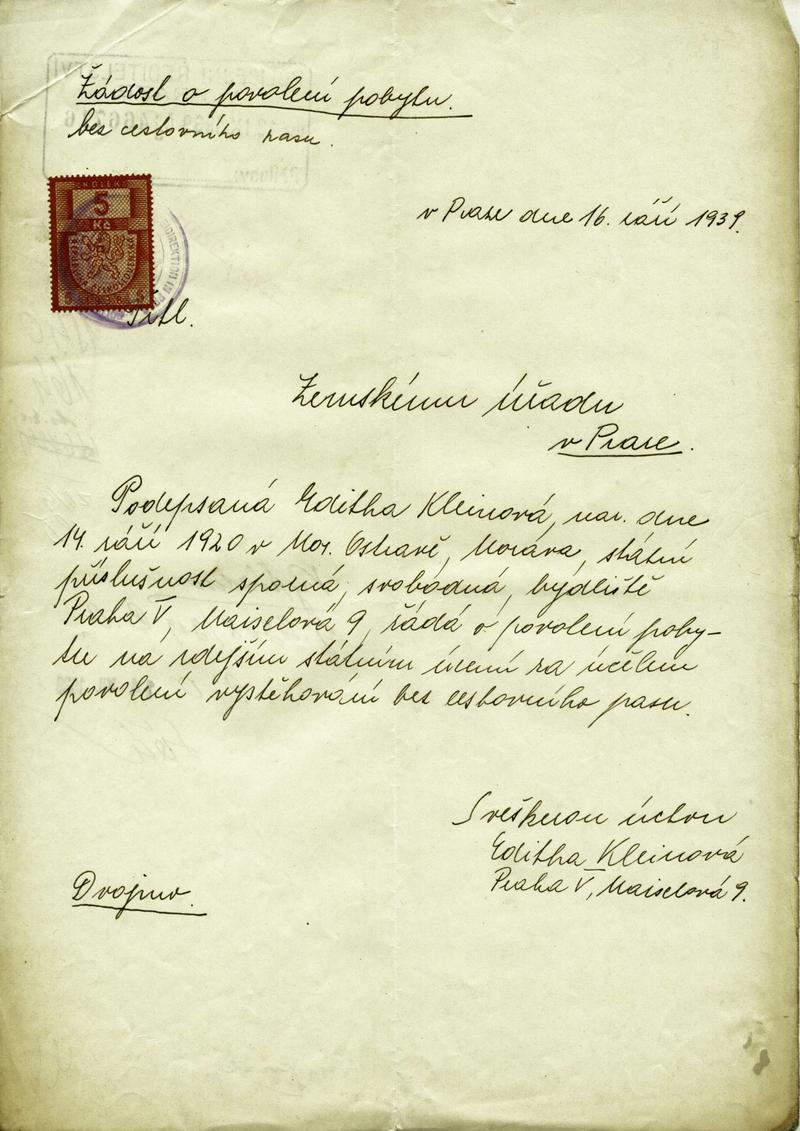 Žádost o povolení pobytu.
bez cestovního pasu.
v Praze dne 16. září 1939.
KOLEK
5
Kč
REPUBLIKA ČESKOSLOVENSKÁ
Titl.
Zemskému úřadu
v Praze.
Podepsaná Editha Kleinová, nar. dne
14. září 1920 v Mor. Ostravě, Morava, státní
příslušnost sporná, svobodná, bydliště
Praha V, Maiselová 9, žádá o povolení poby-
tu na zdejším státním území za účelem
povolení vystěhování bez cestovního pasu.
S veškerou úctou
Editha Kleinová
Praha V, Maiselová 9.
Dvojmo.